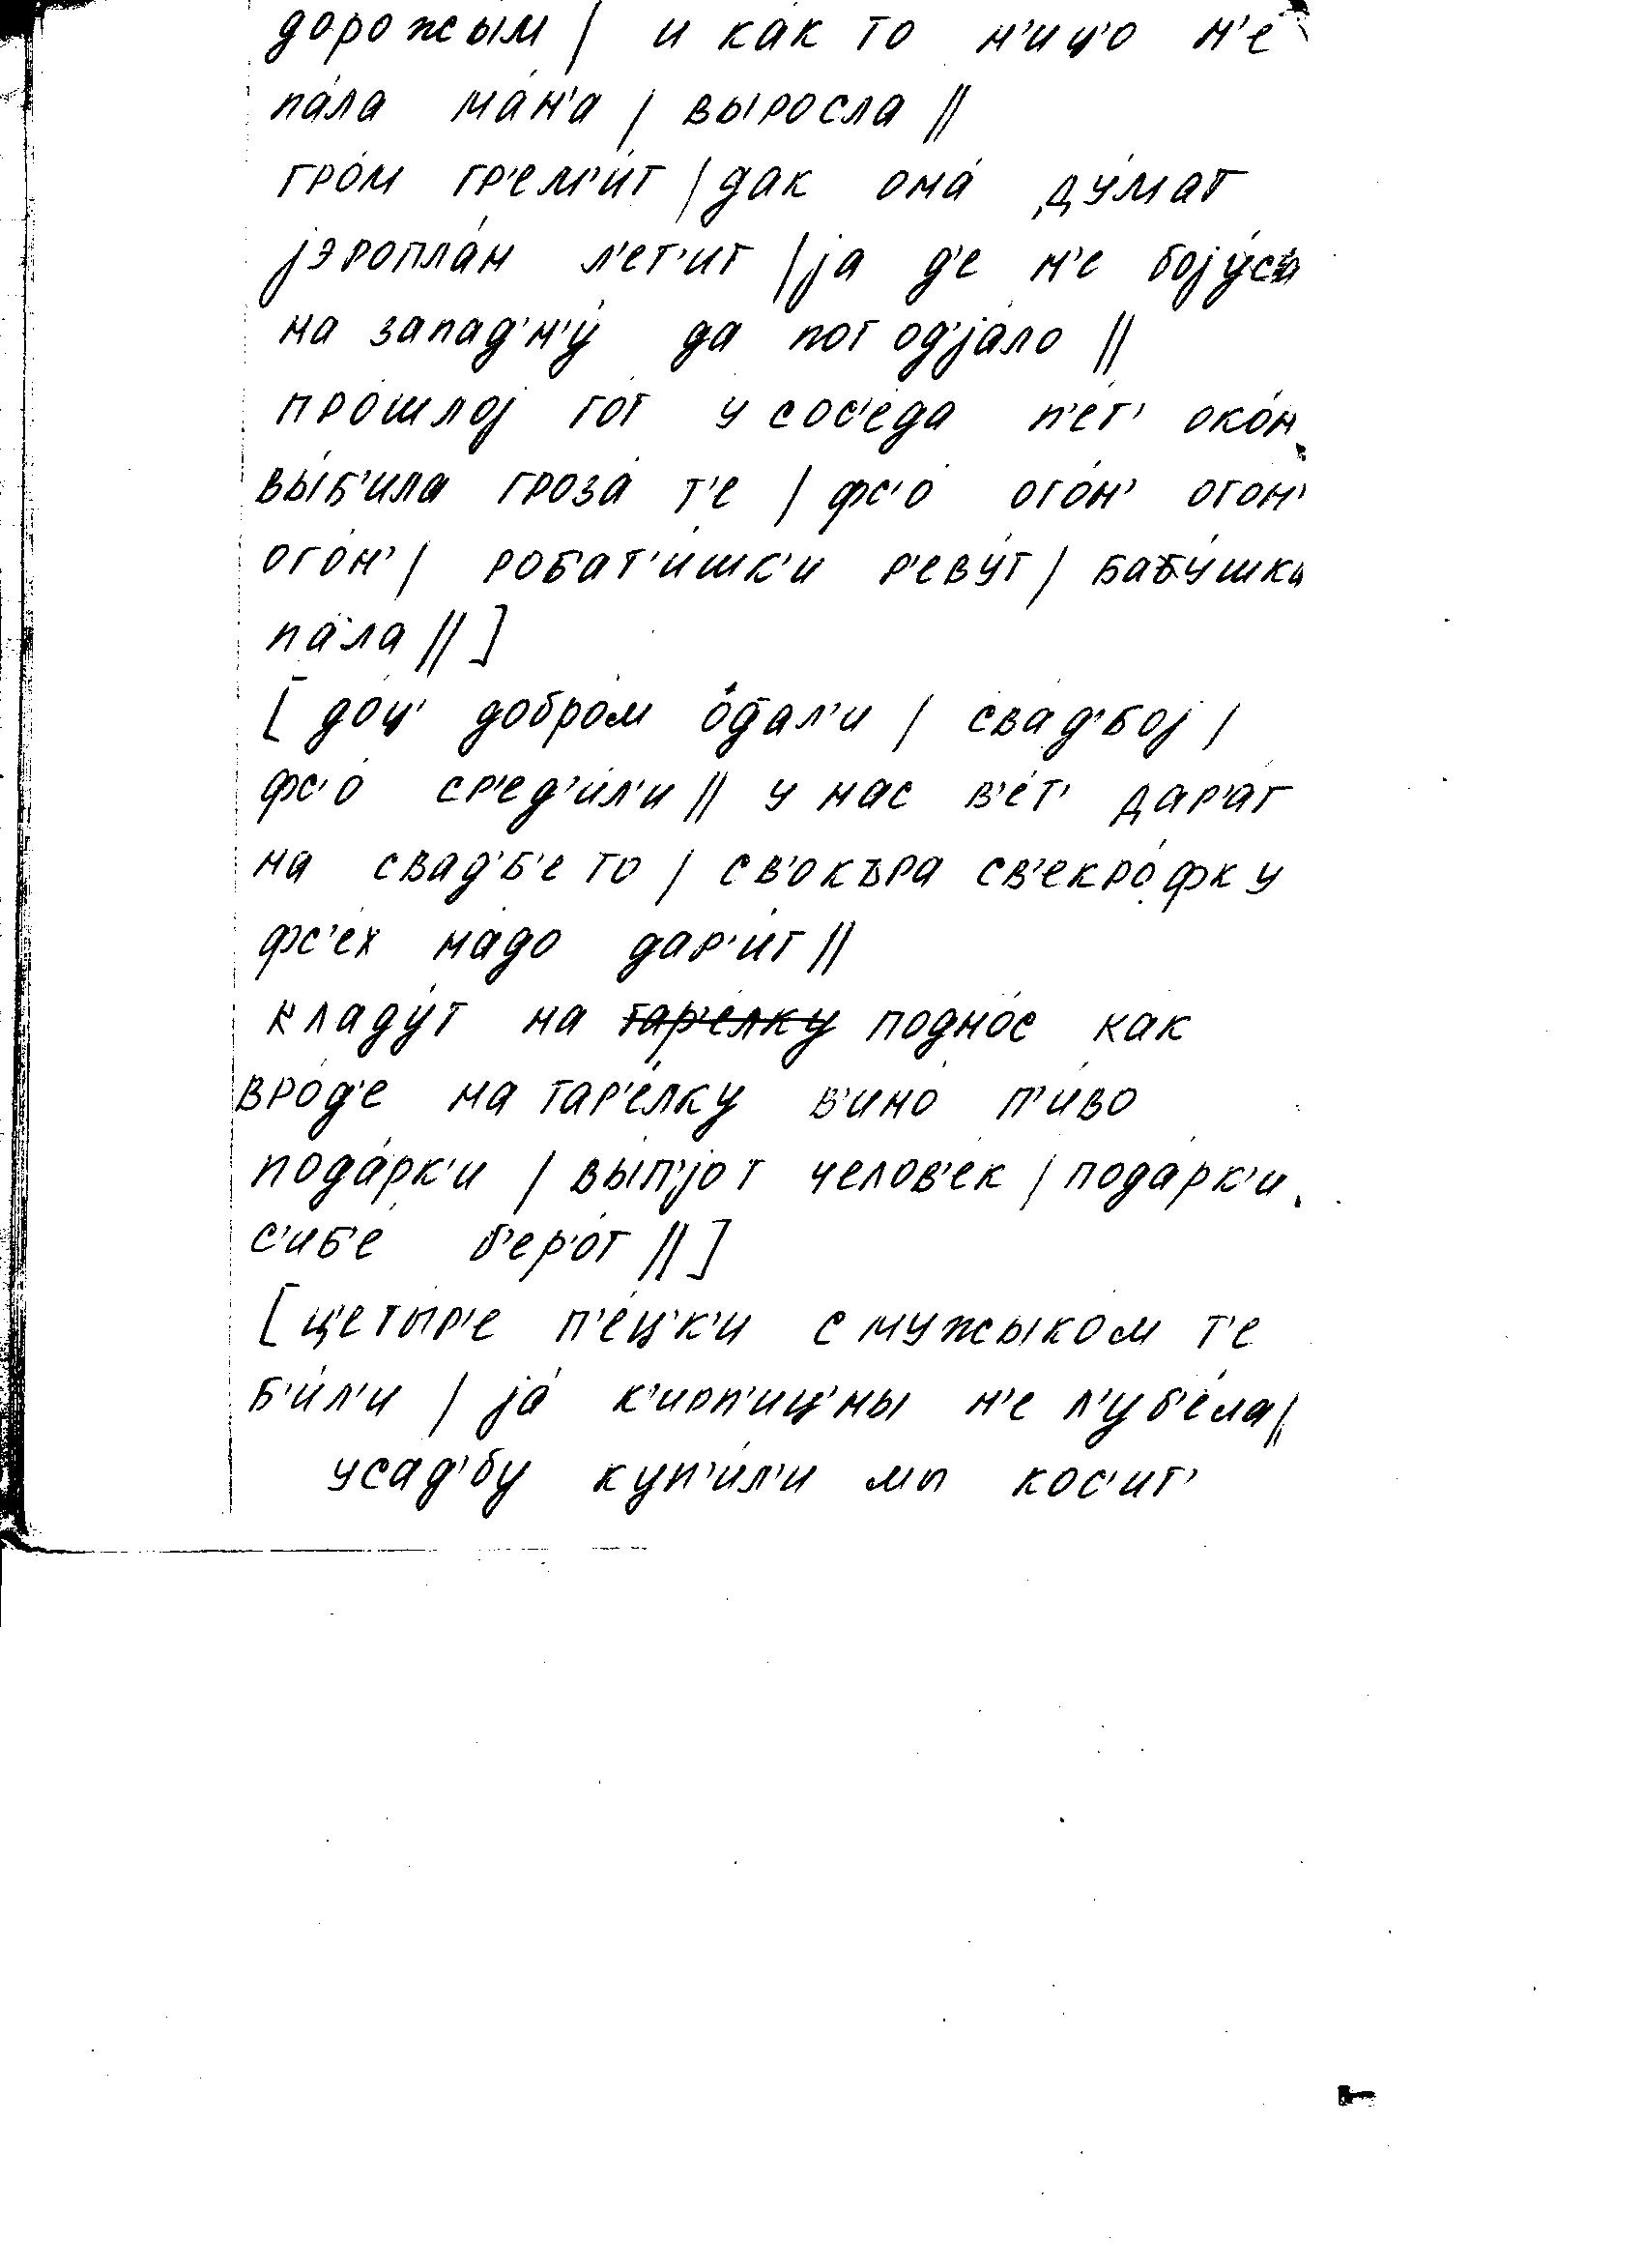 дорожы́м | и ка́к то н'иц'о́ н'е
па́ла ма́н'а | вы́росла ||
гро́м гр'ем'и́т | дак она́ ду́мат
jэропла́н л'ет'и́т | jа д'е н'е боjу́са
на запад'н'у́ да пот од'jа́ло ||
про́шлоj го́т у сос'е́да п'е́т' око́н
вы́б'ила гроза́ т'е | фс'о́ ого́н' ого́н'
ого́н' | робат'и́шк'и р'еву́т | бабу́шка
па́ла || ]
[ до́ц' добро́м о́дал'и | сва́д'боj |
фс'о́ ср'ед'и́л'и || у нас в'е́т' дар'а́т
на свад'б'е то | св'о́къра св'екро́фку
фс'е́х на́до дар'и́т ||
кладу́т на тар'е́лку подно́с ка́к
вро́д'е на тар'е́лку в'ино́ п'и́во
пода́рк'и | вы́п'jот челов'е́к | пода́рк'и
с'иб'е́ б'ер'о́т || ]
[ ц'еты́р'е п'е́ц'к'и с мужыко́м т'е
б'и́л'и | jа́ к'ирп'иц'ны н'е л'уб'е́ла ||
усад'бу куп'и́л'и мы кос'ит'